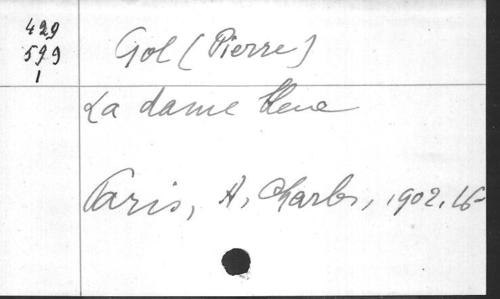 429
599
1
Gol (Pierre)
La dame bleue
Paris, A. Charles, 1902, 16-